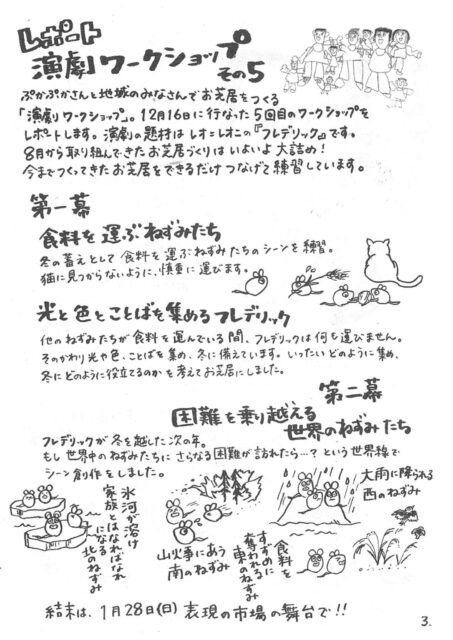 レポート
演劇ワークショップ
その5
ぷかぷかさんと地域のみなさんでお芝居をつくる
「演劇ワークショップ」。12月16日に行なった5回目のワークショップを
レポートします。演劇の題材はレオ=レオニの『フレデリック』です。
8月から取り組んできたお芝居づくりはいよいよ大詰め!
今までつくってきたお芝居をできるだけつなげて練習しています。
第一幕
食料を運ぶねずみたち
冬の蓄えとして食料を運ぶねずみたちのシーンを練習。
猫に見つからないように、慎重に運びます。
光と色とことばを集めるフレデリック
他のねずみたちが食料を運んでいる間、フレデリックは何も運びません。
そのかわり光や色、ことばを集め、冬に備えています。いったいどのように集め、
冬にどのように役立てるのかを考えてお芝居にしました。
第二幕
困難を乗り越える
世界のねずみたち
フレデリックが冬を越した次の年。
もし世界中のねずみたちにさらなる困難が訪れたら…?という世界線で
シーン創作をしました。
氷河が溶け
家族はなればなれ
になる
北のねずみ
山火事にあう
南のねずみ
食料を
すずめに
奪われる
東のねずみ
大雨に降られる
西のねずみ
結末は、1月28日(日)表現の市場の舞台で!!
3.